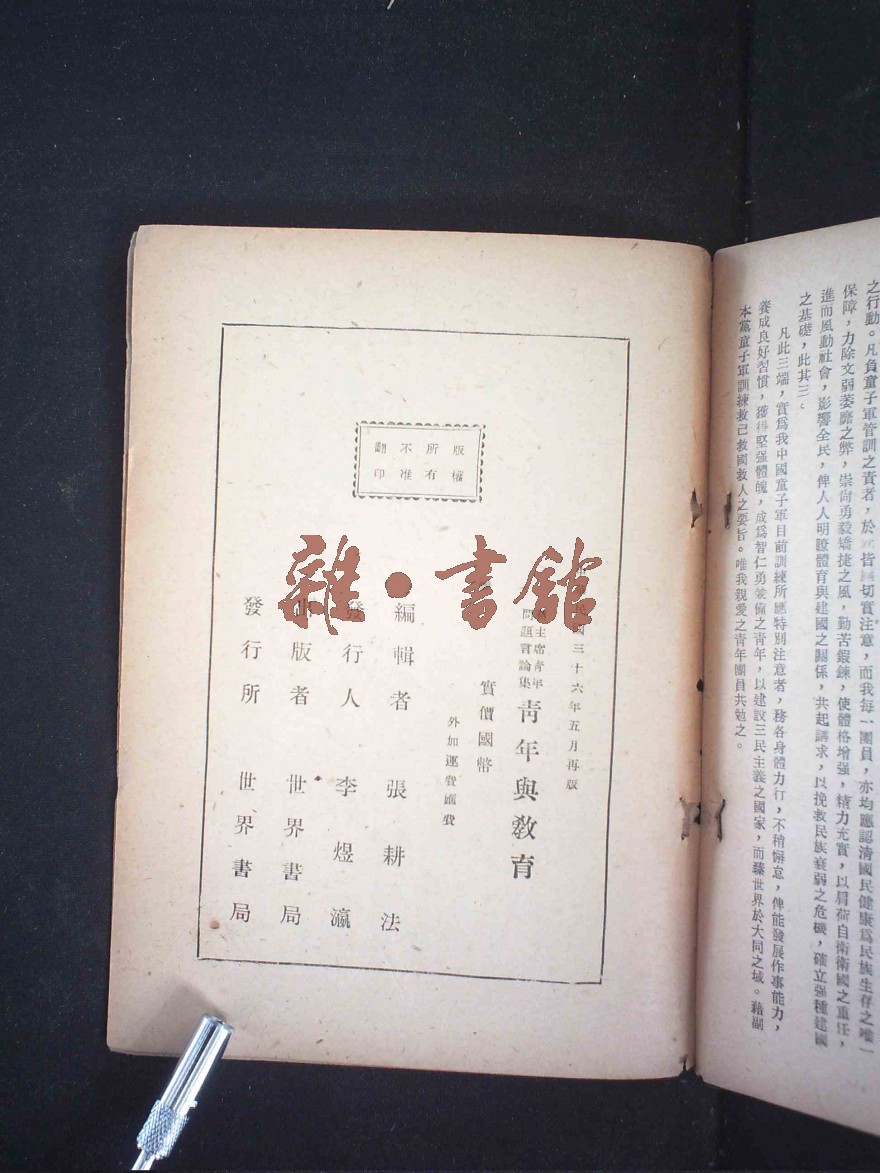 之行動。凡負童子軍管訓之責者，於此皆切實注意，而我每一團員，亦均應認清國民健康爲民族生存之唯一
保障，力除文弱萎靡之弊，崇尙勇毅矯捷之風，勤苦鍛鍊，使體格增强，精力充實，以肩荷自衛衛國之重任，
進而風動社會，影響全民，俾人人明瞭體育與建國之關係，共起講求，以挽救民族衰弱之危機，確立强種建國
之基礎，此其三。
凡此三端，實爲我中國童子軍目前訓練所應特別注意者，務各身體力行，不稍懈怠，俾能發展作事能力，
養成良好習慣，獲得堅强體魄，成爲智仁勇兼備之青年，以建設三民主義之國家，而臻世界於大同之域。藉副
本黨童子軍訓練救己救國救人之要旨。唯我親愛之青年團員共勉之。
版權
所有
不准
翻印
民國三十六年五月再版
主席青年
問題言論集
青年與教育
實價國幣
外加運費匯費
編輯者 張耕法
發行人 李煜瀛
出版者 世界書局
發行所 世界書局
雜·書館